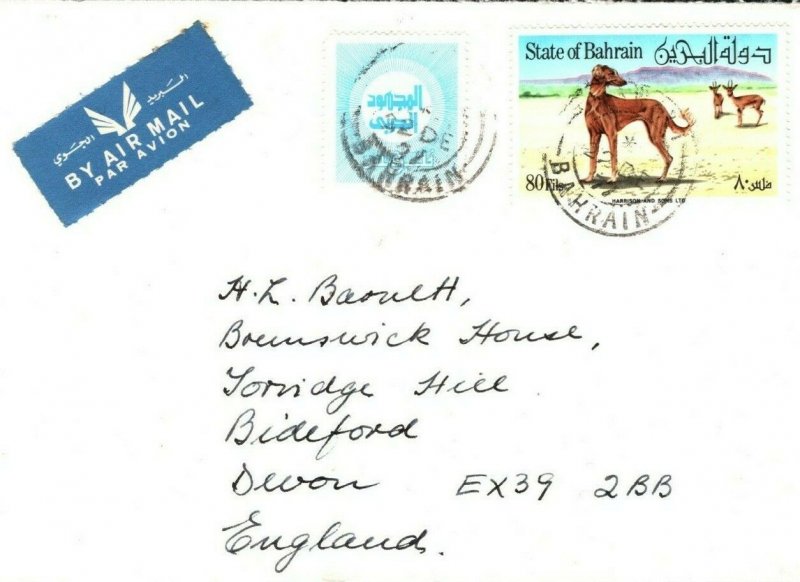 البريد الجوي
BY AIR MAIL
PAR AVION
المجهود
الحربي
BAHRAIN
State of Bahrain دولة البحرين
80 Fils ٨٠ فلس
HARRISON AND SONS LTD
BAHRAIN
H.L. Barnett,
Brunswick House,
Torridge Hill
Bideford
Devon EX39 2BB
England.